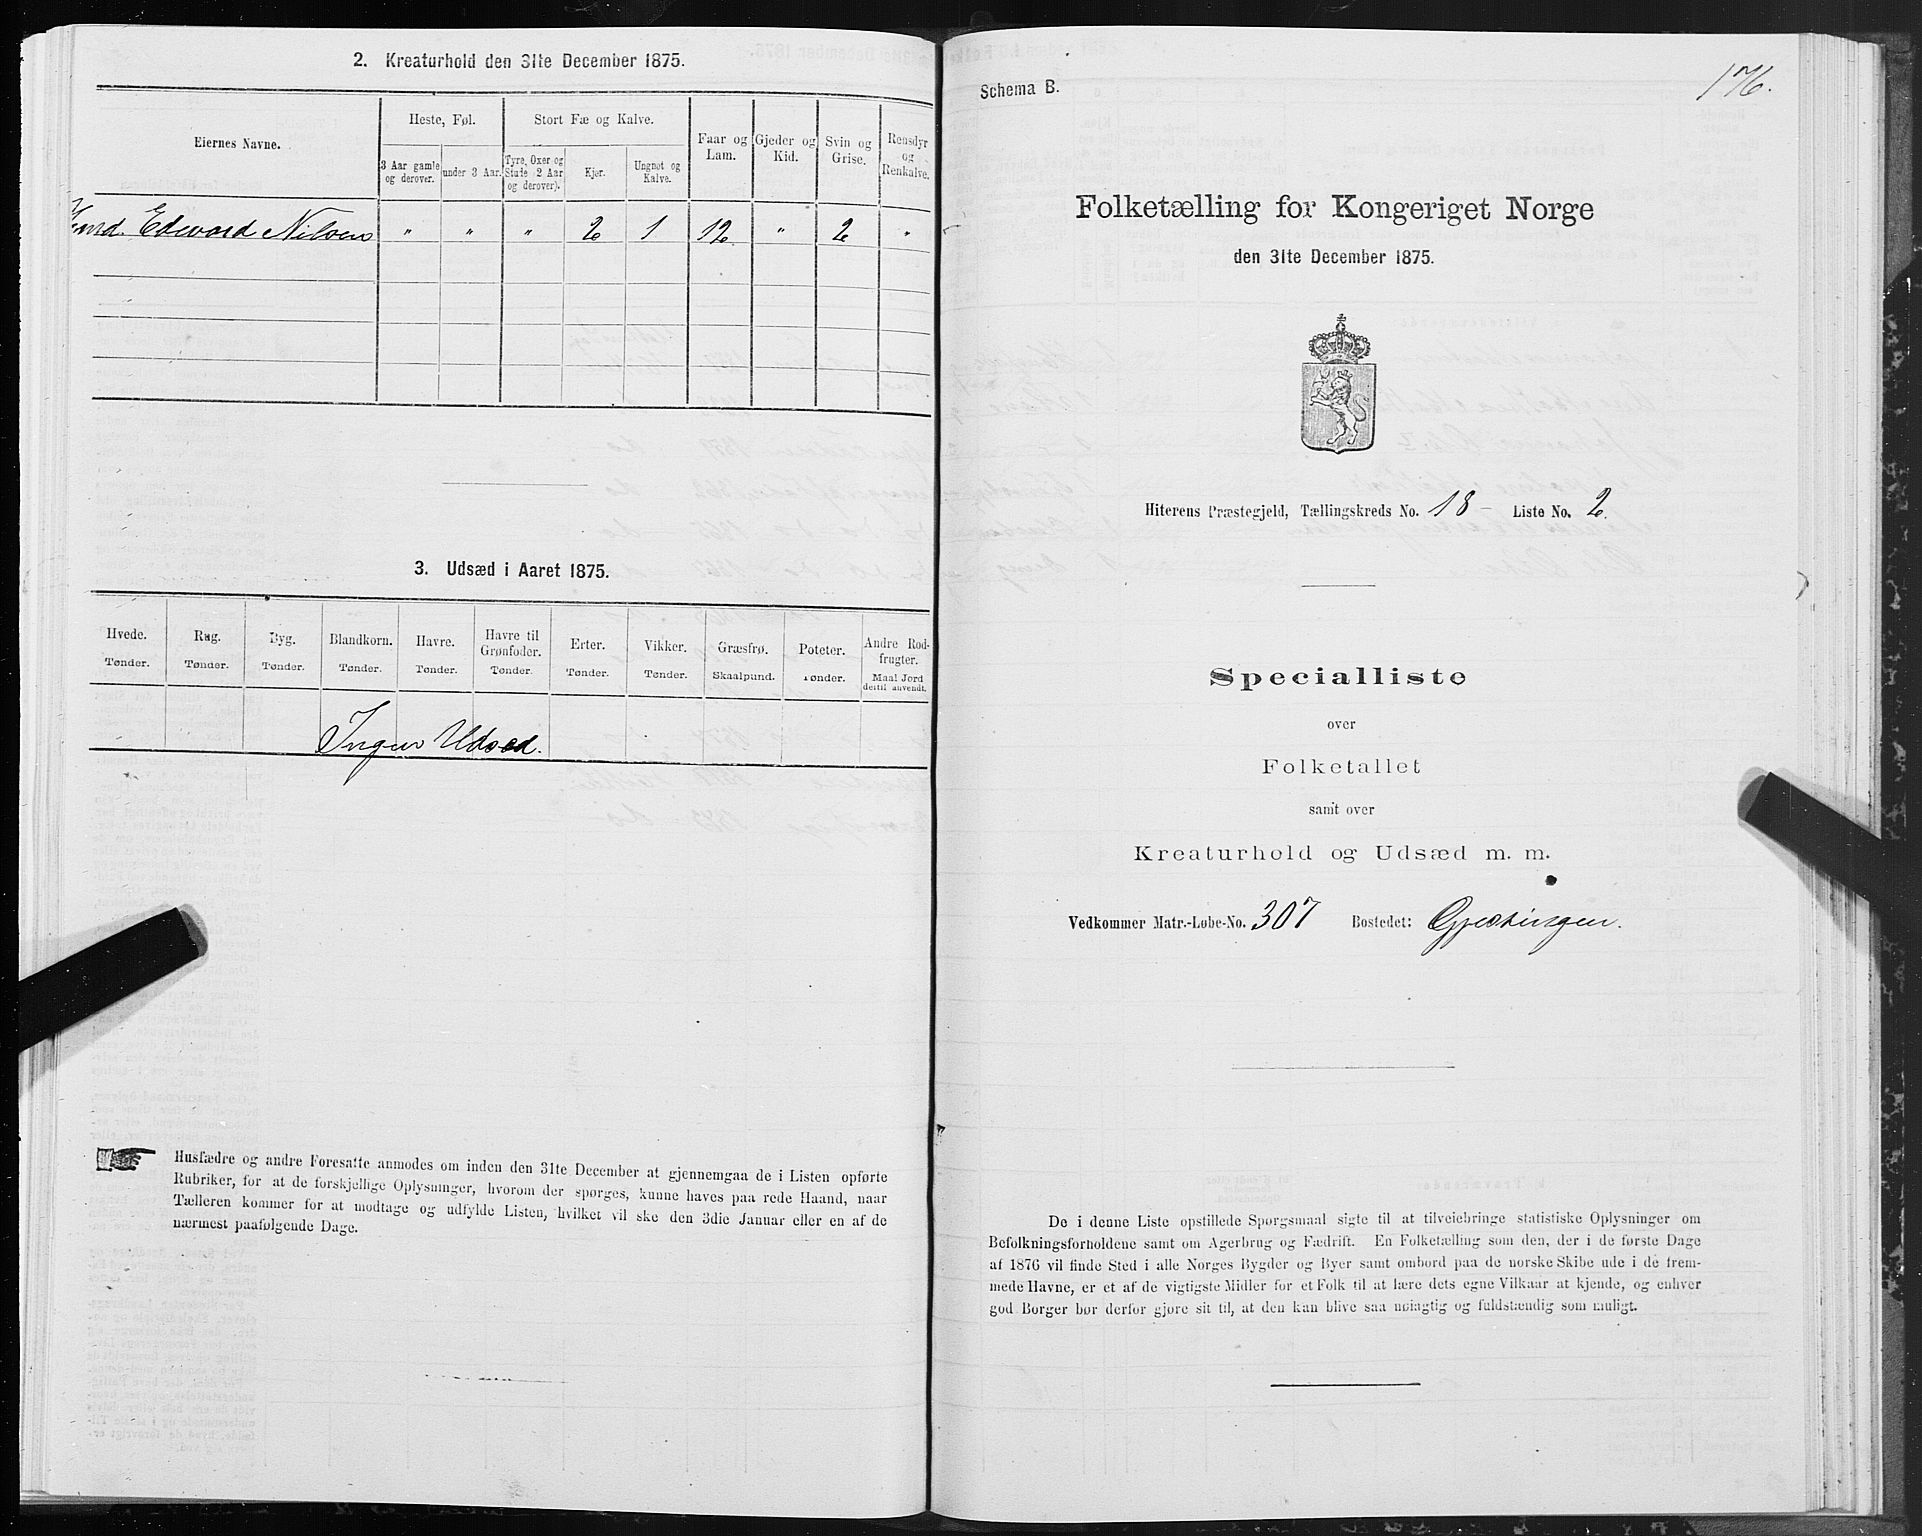 2. Kreaturhold den 31te December 1875.
Eiernes Navne.
Heste, Føl.
Stort Fæ og Kalve.
Faar og Lam.
Gjeder og Kid.
Svin og Grise.
Rensdyr og Renkalve.
3 Aar gamle og derover.
under 3 Aar.
Tyre, Oxer og Stude (2 Aar og derover).
Kjør.
Ungnøt og Kalve.
Edward Nilsen " " " 2 1 12 " 2 "
3. Udsæd i Aaret 1875.
Hvede. Tønder.
Rug. Tønder.
Byg. Tønder.
Blandkorn. Tønder.
Havre. Tønder.
Havre til Grønfoder. Tønder.
Erter. Tønder.
Vikker. Tønder.
Græsfrø. Skaalpund.
Poteter. Tønder.
Andre Rodfrugter. Maal Jord dertil anvendt.
Ingen Udsæd.
Husfædre og andre Foresatte anmodes om inden den 31te December at gjennemgaa de i Listen opførte
Rubriker, for at de forskjellige Oplysninger, hvorom der spørges, kunne haves paa rede Haand, naar
Tælleren kommer for at modtage og udfylde Listen, hvilket vil ske den 3die Januar eller en af de
nærmest paafølgende Dage.
176.
Schema B.
Folketælling for Kongeriget Norge
den 31te December 1875.
Hiterens Præstegjeld, Tællingskreds No. 18 - Liste No. 2.
Specialliste
over
Folketallet
samt over
Kreaturhold og Udsæd m. m.
Vedkommer Matr.-Løbe-No. 307 Bostedet: Gjæsingen.
De i denne Liste opstillede Spørgsmaal sigte til at tilveiebringe statistiske Oplysninger om
Befolkningsforholdene samt om Agerbrug og Fædrift. En Folketælling som den, der i de første Dage
af 1876 vil finde Sted i alle Norges Bygder og Byer samt ombord paa de norske Skibe ude i de frem-
mede Havne, er et af de vigtigste Midler for et Folk til at lære dets egne Vilkaar at kjende, og enhver
god Borger bør derfor gjøre sit til, at den kan blive saa nøiagtig og fuldstændig som muligt.